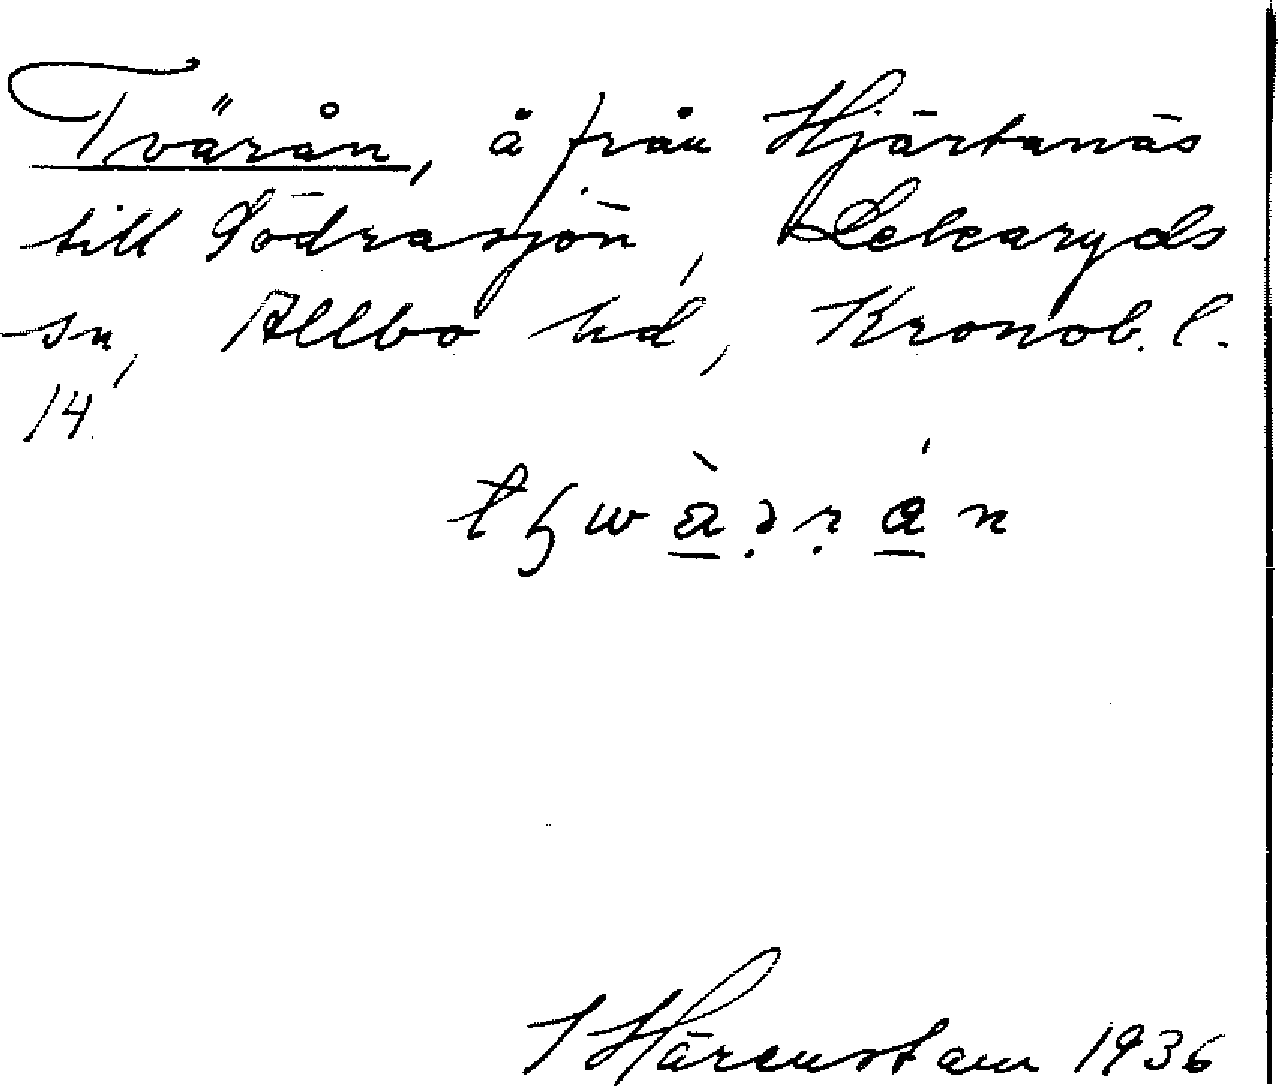 Tvärån, å från Hjärtanäs
till Södrasjön, Lekaryds
sn, Allbo hd, Kronob. l.
14.
J Härenstam 1936